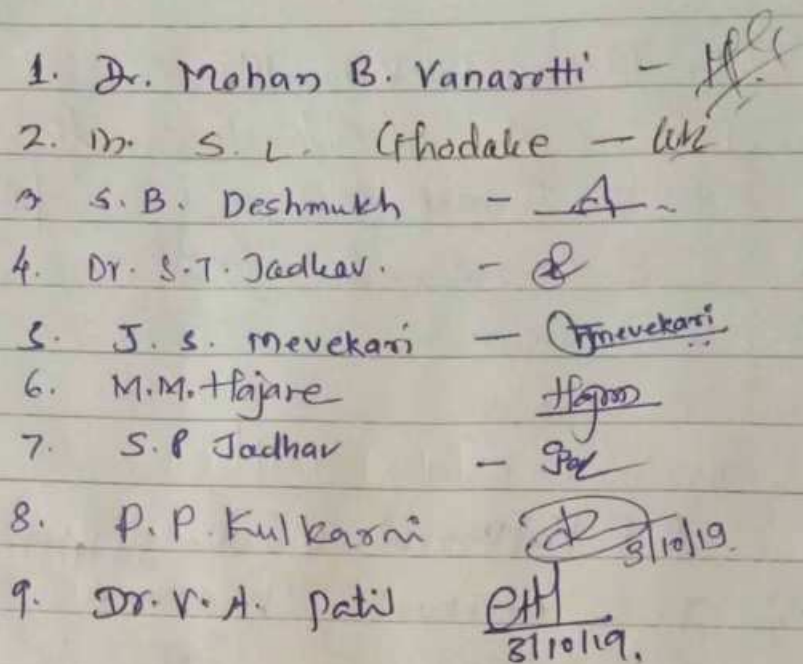 1. Dr. Mohan B. Vanarotti -
2. Dr. S. L. Ghodake -
3 S. B. Deshmukh -
4. Dr. S.T. Jadhav. -
5. J. S. Mevekari - mevekari
6. M.M. Hajare
7. S.P Jadhav -
8. P.P. Kulkarni 3/10/19.
9. Dr. V.A. Patil
3/10/19.